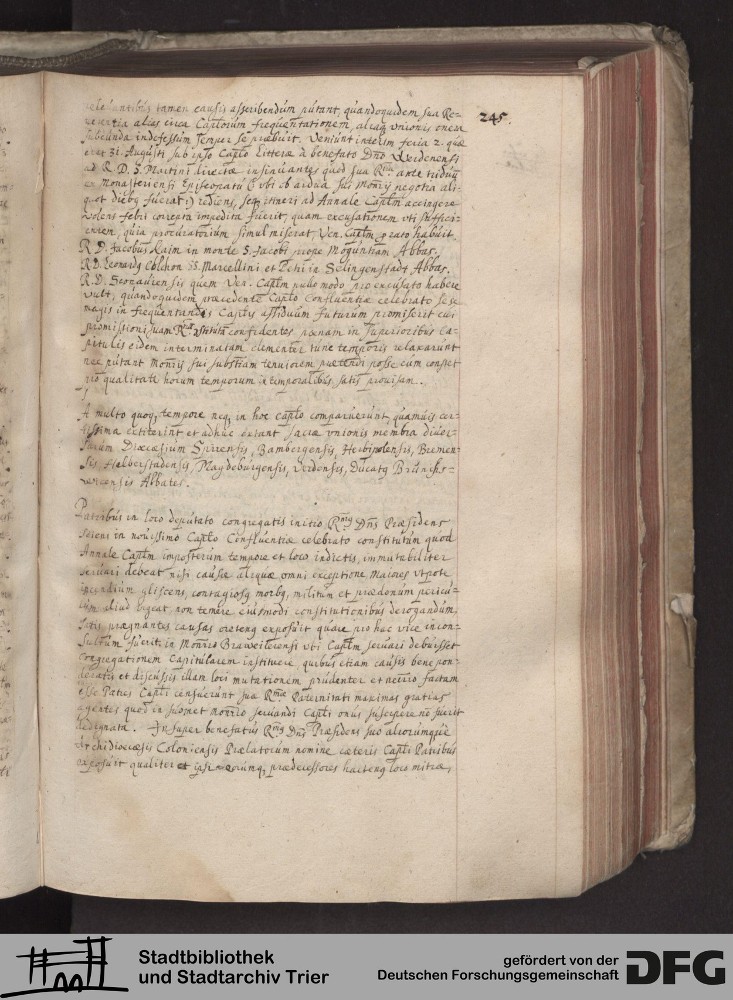 245.
tamen causis asscribendum putant, quandoquidem sua Re-
verentia alias circa Capitlorum frequentationem, aliaq unionis onera
subeunda indefessum semper se præbuit. Veniunt interim feria 2. quæ
erat 31. Augusti sub ipso Caplo Litteræ à benefato Dno Werdenensi
ad R. D. S. Martini directæ insinuantes quod sua Rma ante triduum
ex Monasteriensi Episcopatu (: ubi ob ardua sui Monrij negotia ali-
quot dieby fuerat :) rediens, seq itineri ad Annale Caplm accingere
volens febri correpta impedita fuerit, quam excusationem uti suffici-
entem, quia procuratorium simul miserat, Ven. Caplm grato habuit.
R. D. Jacobus Raim in monte S. Jacobi prope Moguntiam Abbas.
R. D. Leonardy Colchon SS. Marcellini et Petri in Selingenstadt Abbas.
R. D. Sconaviensis quem Ven. Caplm nullo modo pro excusato habere
vult, quandoquidem præcedente Caplo Confluentiæ celebrato sese
magis in frequentandis Caplis assiduum futurum promiserit cui
promissioni suam Rma confidentes pœnam in superioribus Ca-
pitulis eidem interminatam clementer tunc temporis relaxarunt
nec putant Monrij sui substam tenuiorem prætendi posse cum constet
pro qualitate horum temporum in temporalibus satis provisam.
A multo quoq tempore neq in hoc Caplo comparuerunt, quamvis cer-
tissima extiterint et adhuc extant sacræ unionis membra diver-
sarum Diœcæsium Spirensis, Bambergensis, Herbipolensis, Bremen-
sis Helberstadensis, Magdeburgensis, Verdensis, Ducaty Brunchs-
wicensis Abbates.
Patribus in loco deputato congregatis initio Rmus Dns Præsidens
sciens in novissimo Caplo Confluentiæ celebrato constitutum quod
Annale Caplm imposterum tempore et loco indictis, immutabiliter
servari debeat nisi causæ aliquæ omni exceptione maiores utpote
incendium gliscens, contagiosq morby, militum et prædonum pericu-
lum aliud urgeat, non temere eiusmodi constitutionibus derogandum,
satis prægnantes causas oreteng exposuit quare pro hac vice incon-
sultum fuerit, in Monrio Brawilerensi ubi Caplm servari debuisset
Congregationem Capitularem instituere, quibus etiam causis bene pon-
deratis et discussis illam loci mutationem prudenter et necrio factam
esse Patres Capli censuerunt sua Rmæ Paternitati maximas gratias
agentes quod in suomet monrio servandi Capli onus suscipere nō fuerit
dedignata. Insuper benefatus Rmus Dns Præsidens suo aliorumque
Archidiœcæsis Coloniensis Prælatorum nomine cæteris Capli Patribus
exposuit qualiter et ipsi eorumq prædecessores hacteng loco mitræ,
Stadtbibliothek
und Stadtarchiv Trier
gefördert von der
Deutschen Forschungsgemeinschaft
DFG